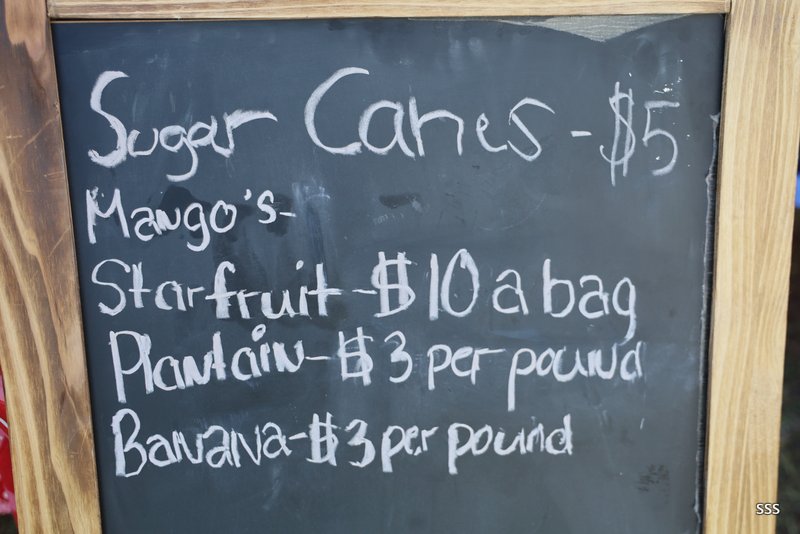 Sugar Canes - $5
Mango's-
Starfruit - $10 a bag
Plantain - $3 per pound
Banana - $3 per pound
SSS